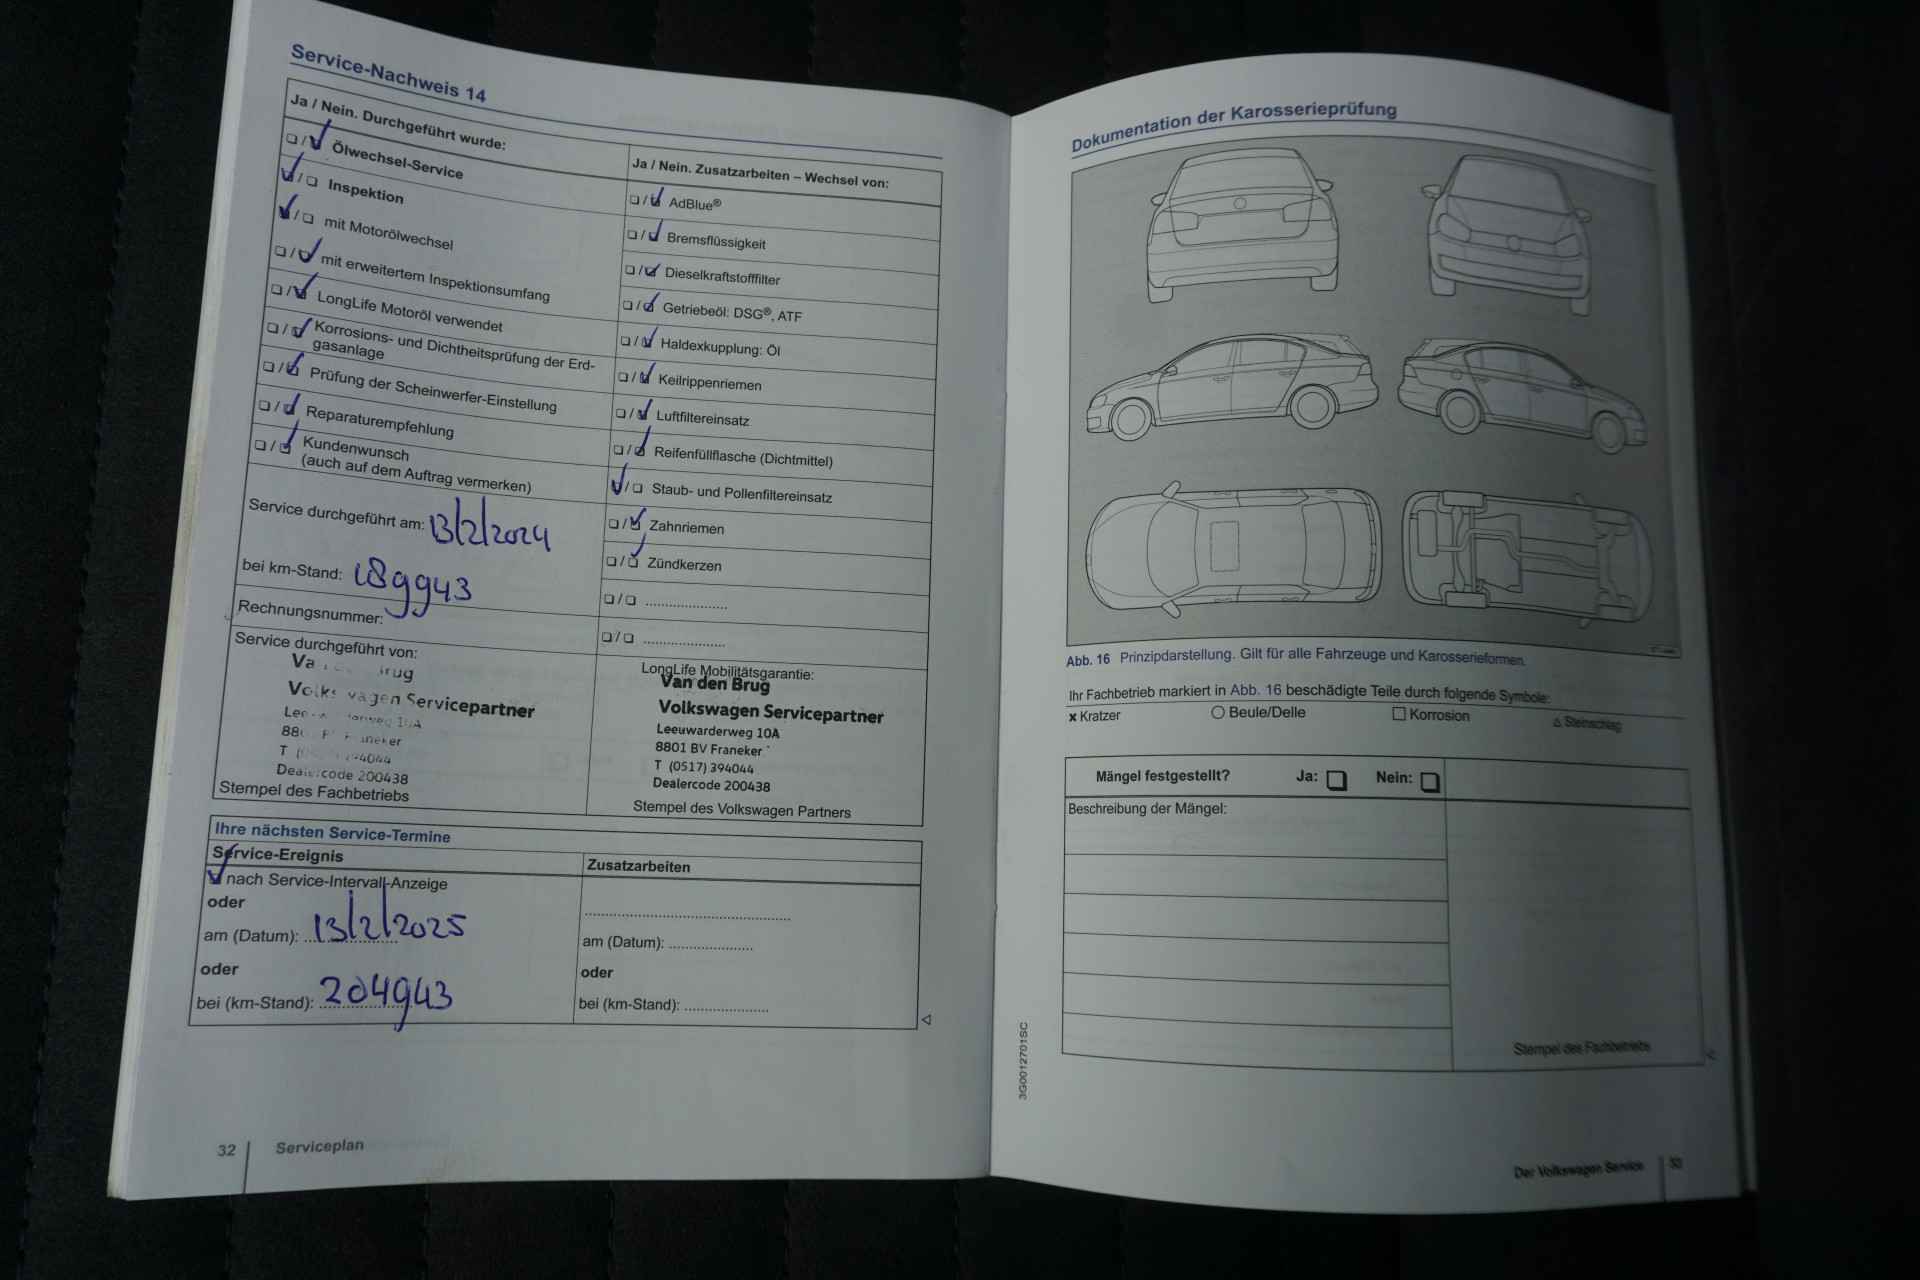 Service-Nachweis 14
Ja / Nein. Durchgeführt wurde:
❏ / ❏ Ölwechsel-Service
❏ / ❏ Inspektion
❏ / ❏ mit Motorölwechsel
❏ / ❏ mit erweitertem Inspektionsumfang
❏ / ❏ LongLife Motoröl verwendet
❏ / ❏ Korrosions- und Dichtheitsprüfung der Erd-
gasanlage
❏ / ❏ Prüfung der Scheinwerfer-Einstellung
❏ / ❏ Reparaturempfehlung
❏ / ❏ Kundenwunsch
(auch auf dem Auftrag vermerken)
Service durchgeführt am: 13/2/2024
bei km-Stand: 189943
Rechnungsnummer:
Ja / Nein. Zusatzarbeiten – Wechsel von:
❏ / ❏ AdBlue®
❏ / ❏ Bremsflüssigkeit
❏ / ❏ Dieselkraftstofffilter
❏ / ❏ Getriebeöl: DSG®, ATF
❏ / ❏ Haldexkupplung: Öl
❏ / ❏ Keilrippenriemen
❏ / ❏ Luftfiltereinsatz
❏ / ❏ Reifenfüllflasche (Dichtmittel)
❏ / ❏ Staub- und Pollenfiltereinsatz
❏ / ❏ Zahnriemen
❏ / ❏ Zündkerzen
❏ / ❏ .....................
❏ / ❏ .....................
Service durchgeführt von:
Volkswagen Servicepartner
Dealercode 200438
Stempel des Fachbetriebs
LongLife Mobilitätsgarantie:
Van den Brug
Volkswagen Servicepartner
Leeuwarderweg 10A
8801 BV Franeker
T (0517) 394044
Dealercode 200438
Stempel des Volkswagen Partners
Ihre nächsten Service-Termine
Service-Ereignis
nach Service-Intervall-Anzeige
oder
am (Datum): 13/2/2025
oder
bei (km-Stand): 204943
Zusatzarbeiten
am (Datum): .....................
oder
bei (km-Stand): .....................
32 Serviceplan
Dokumentation der Karosserieprüfung
Abb. 16 Prinzipdarstellung. Gilt für alle Fahrzeuge und Karosserieformen.
Ihr Fachbetrieb markiert in Abb. 16 beschädigte Teile durch folgende Symbole:
x Kratzer ○ Beule/Delle □ Korrosion △ Steinschlag
Mängel festgestellt? Ja: ❏ Nein: ❏
Beschreibung der Mängel:
Stempel des Fachbetriebs
3G0012701SC
Der Volkswagen Service 33